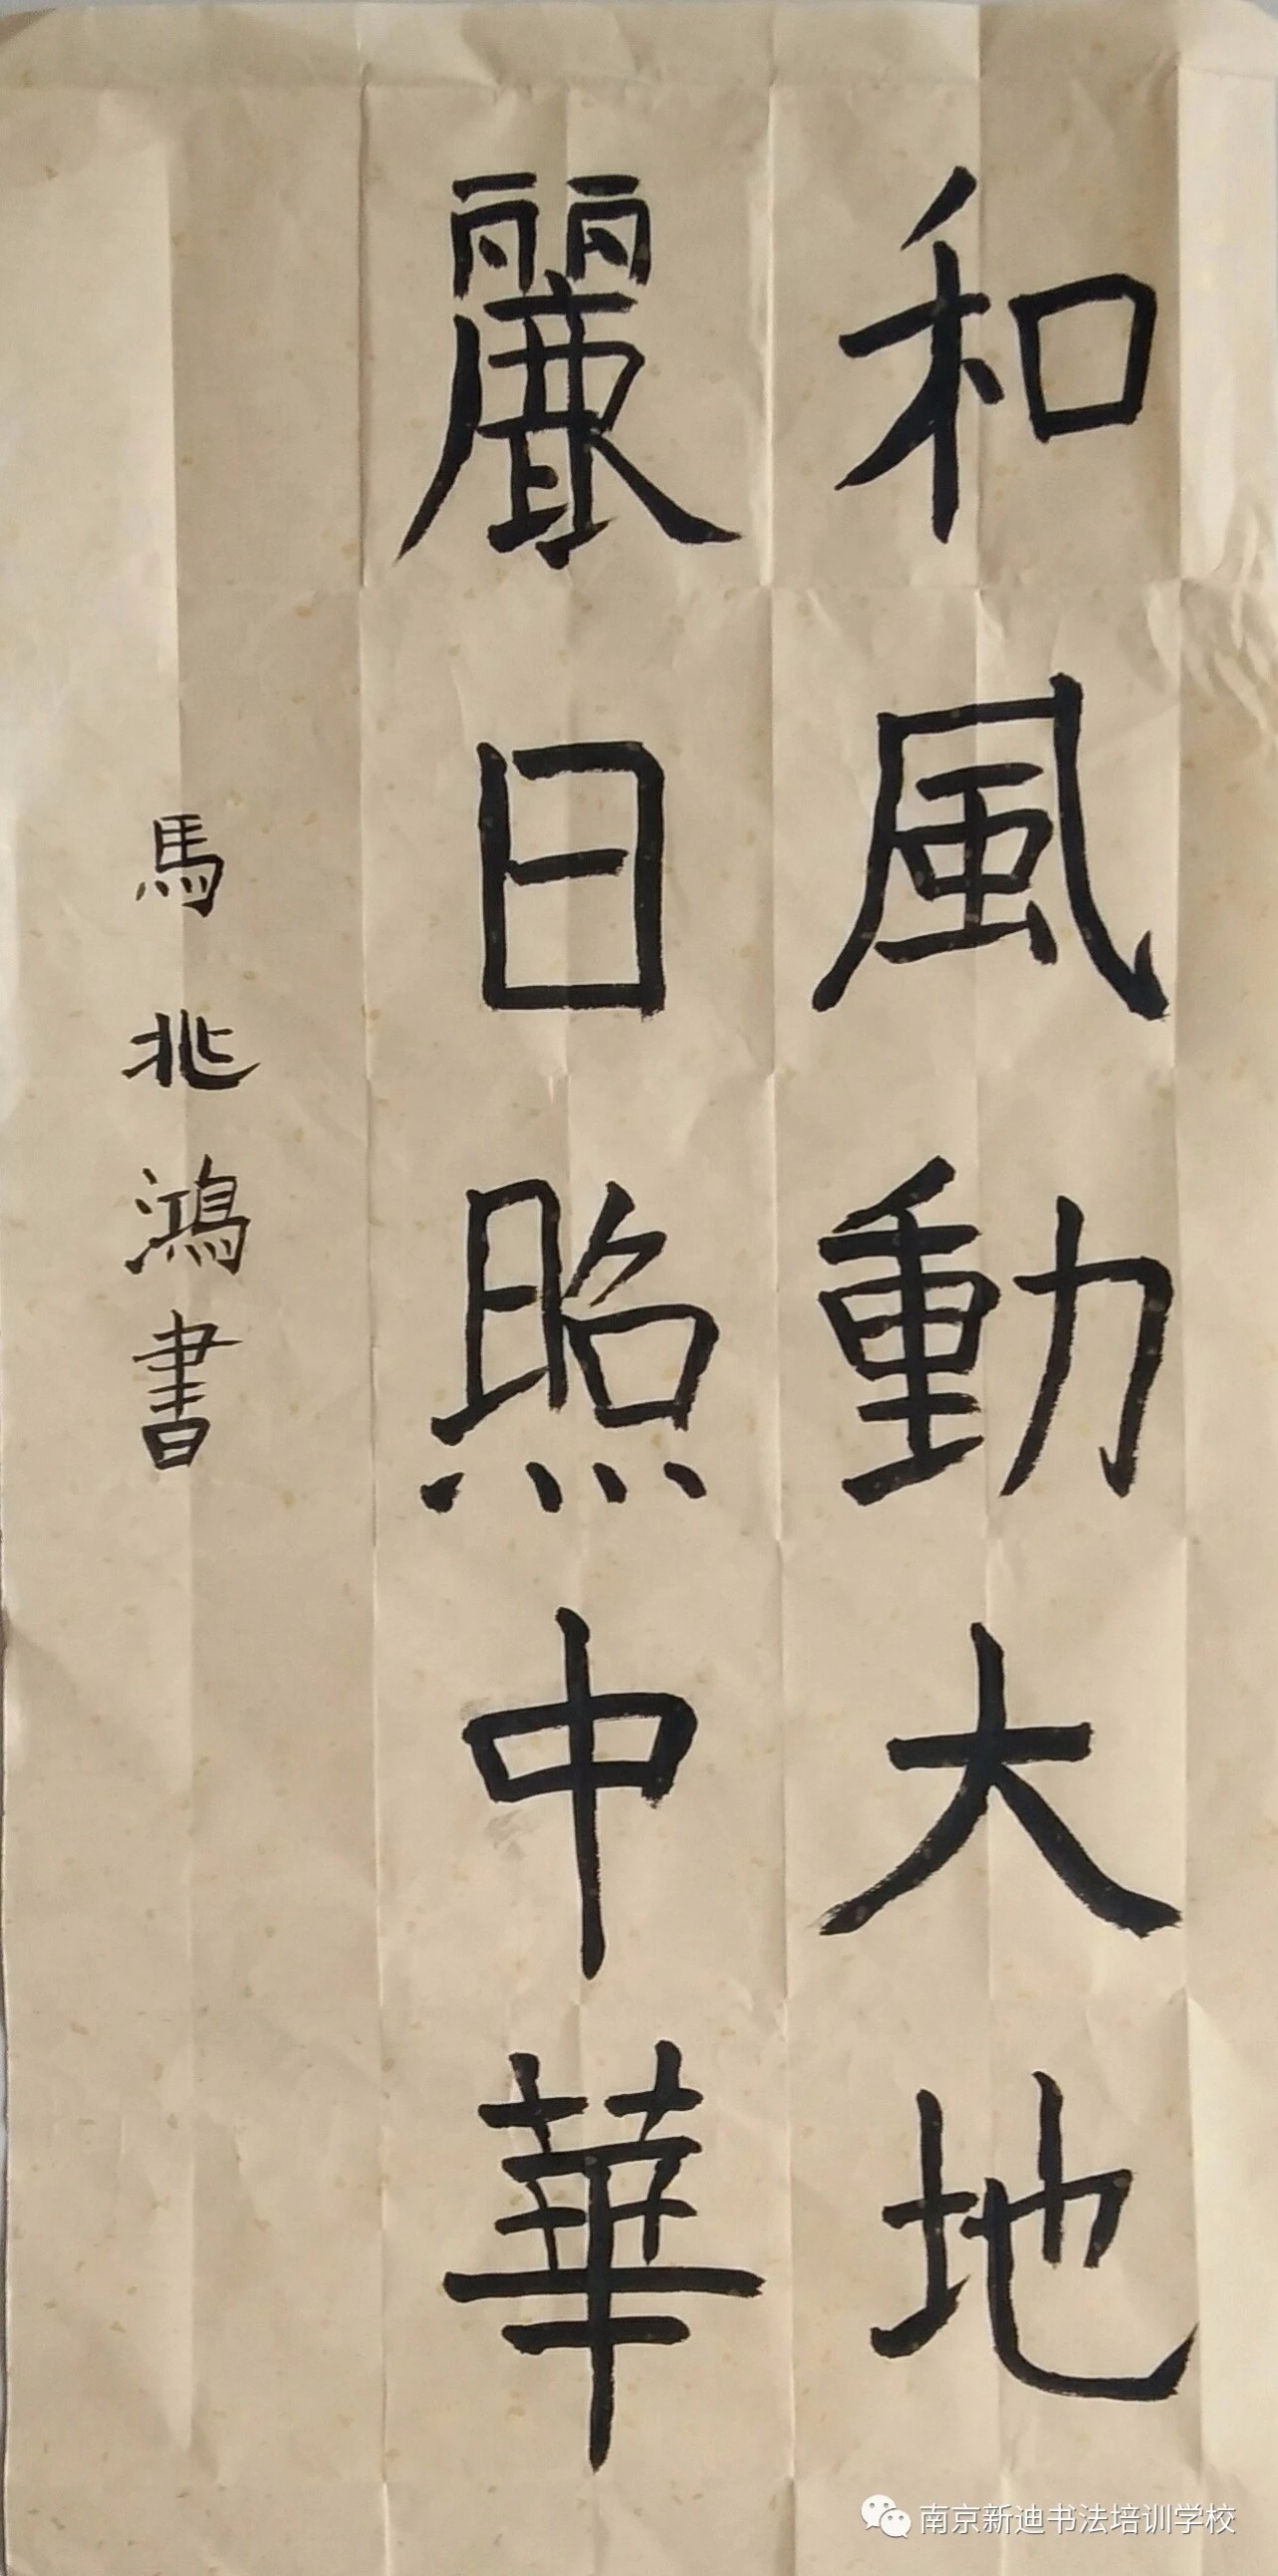 和風動大地
麗日照中華
馬兆鴻書
南京新迪书法培训学校